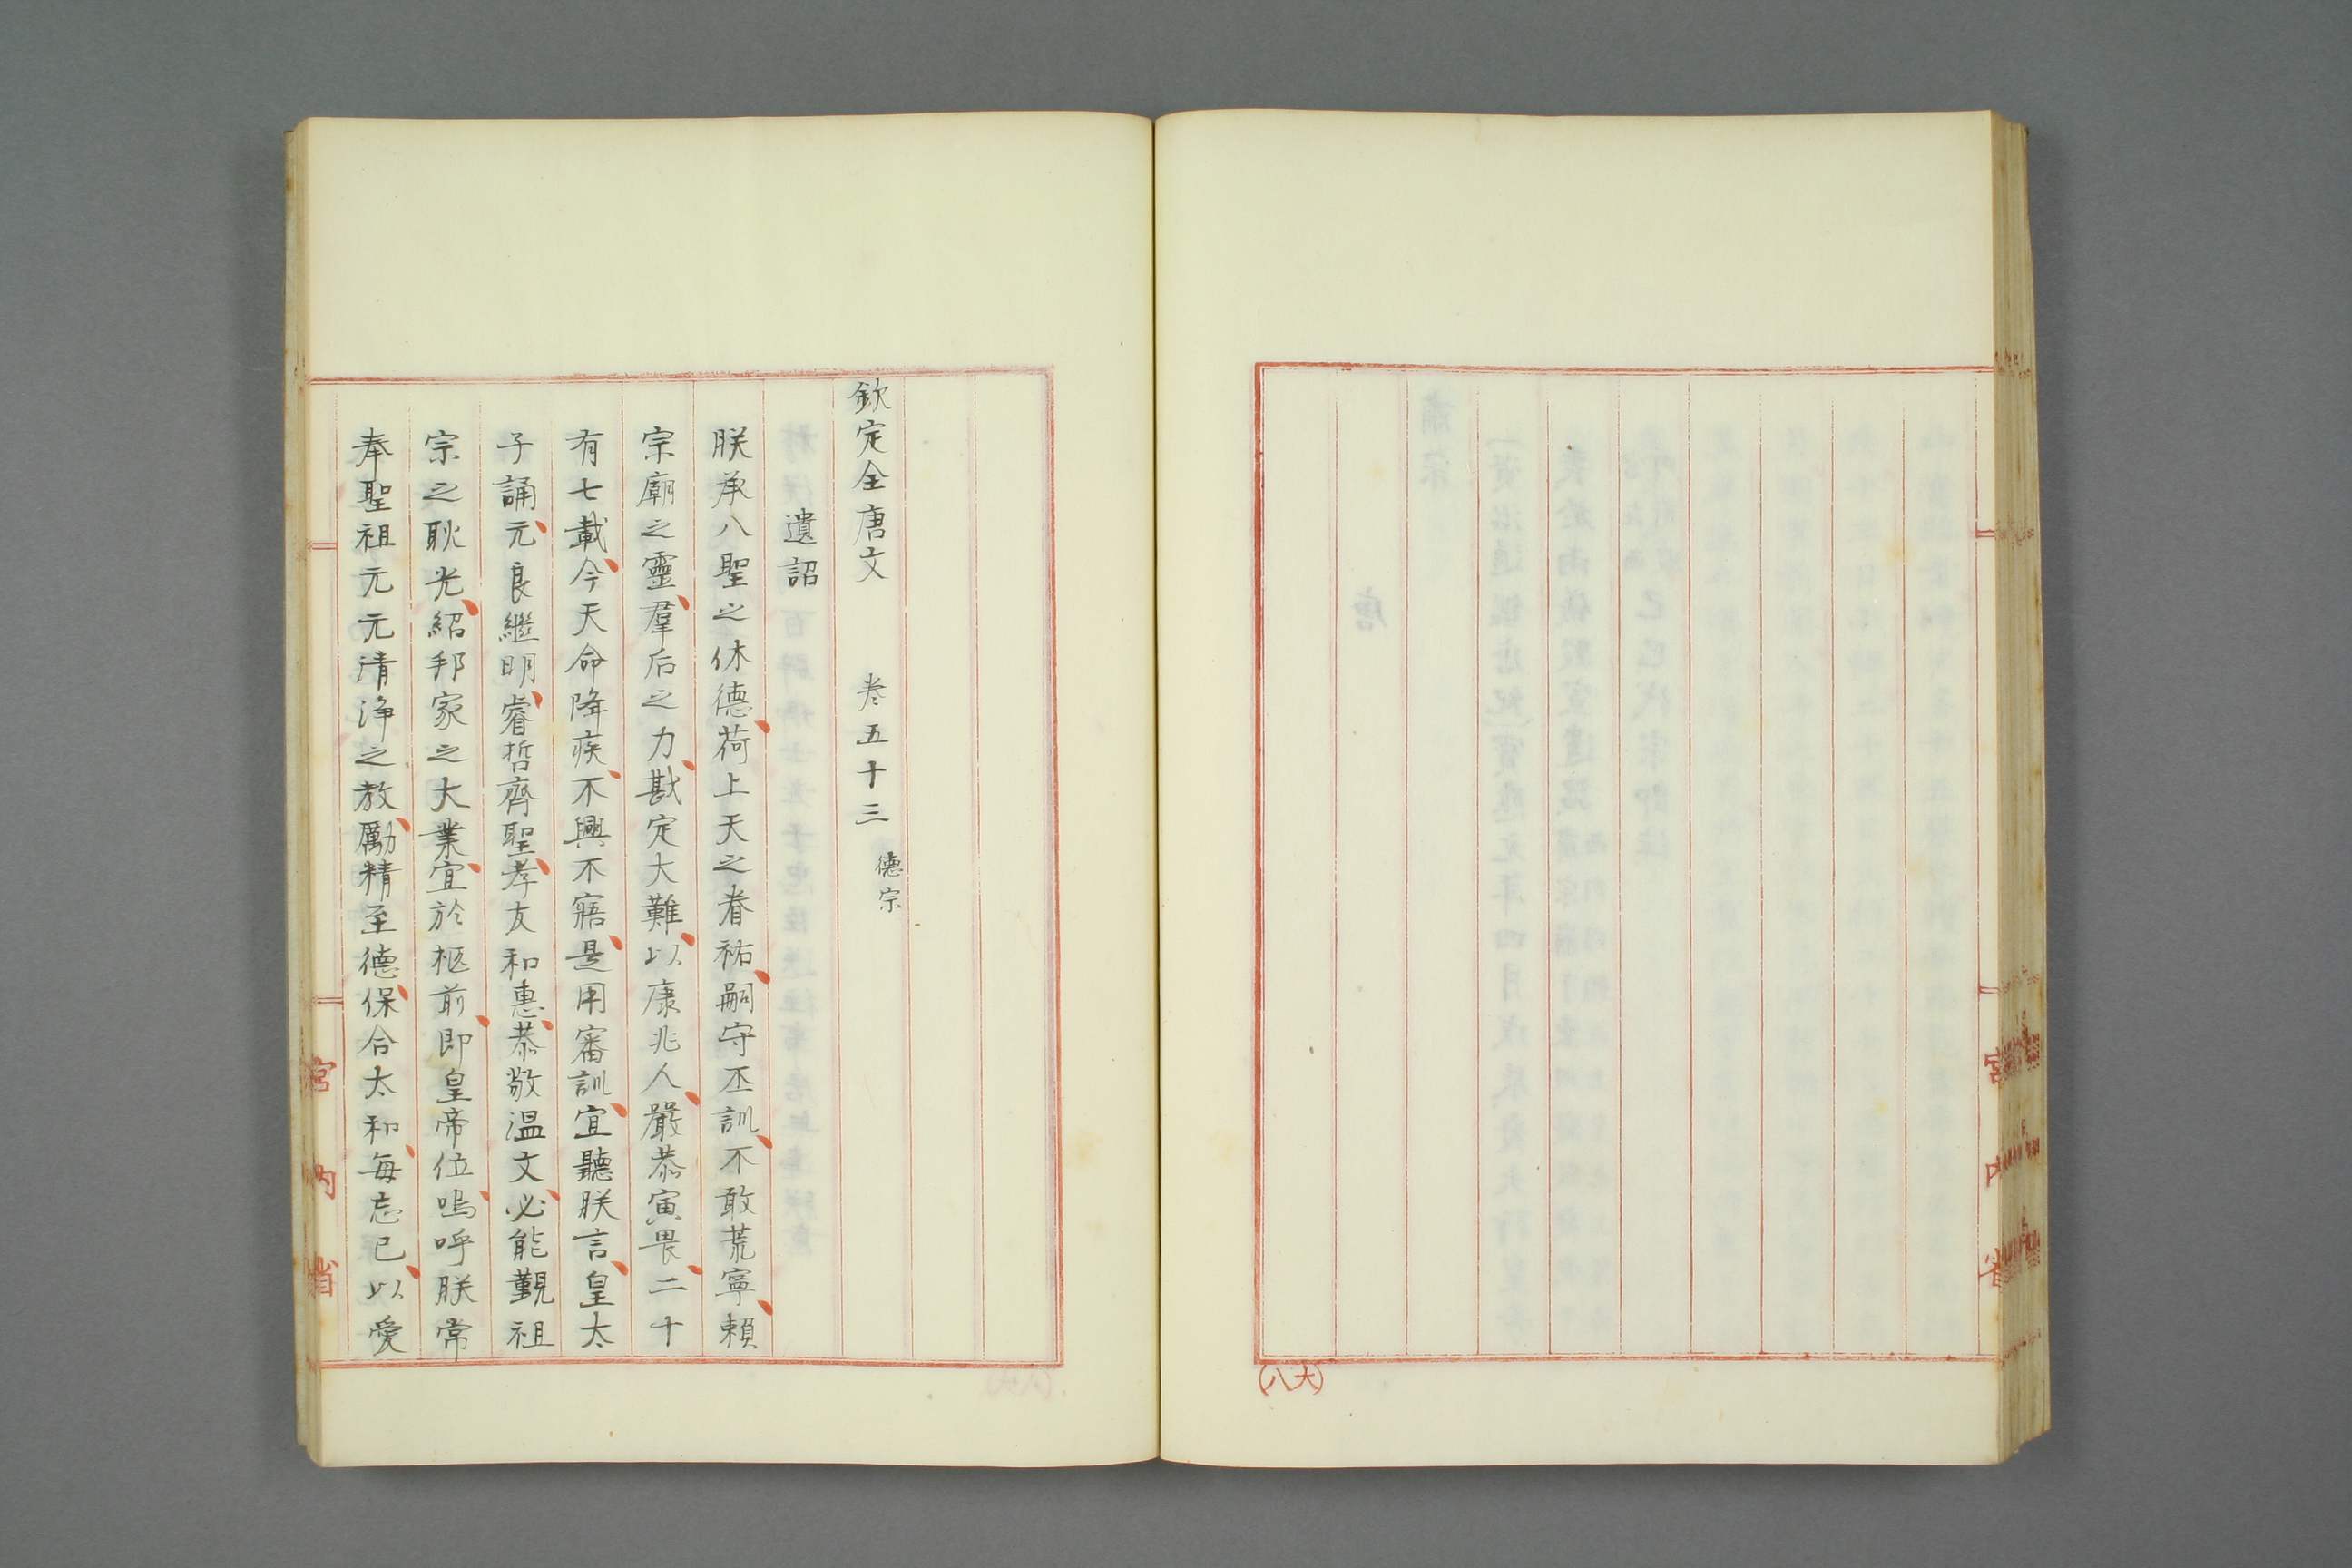 (八大)
宮内省
欽定全唐文 卷五十三 德宗
遺詔
朕承八聖之休德、荷上天之眷祐、嗣守丕訓、不敢荒寧、賴
宗廟之靈、羣后之力、戡定大難、以康兆人、嚴恭寅畏、二十
有七載、今天命降疾、不興不寤、是用審訓、宜聽朕言、皇太
子誦、元良繼明、睿哲齊聖、孝友和惠、恭敬温文、必能覲祖
宗之耿光、紹邦家之大業、宜於柩前、即皇帝位、嗚呼朕常
奉聖祖元元清淨之教、勵精至德、保合太和、每忘已、以愛
宮内省